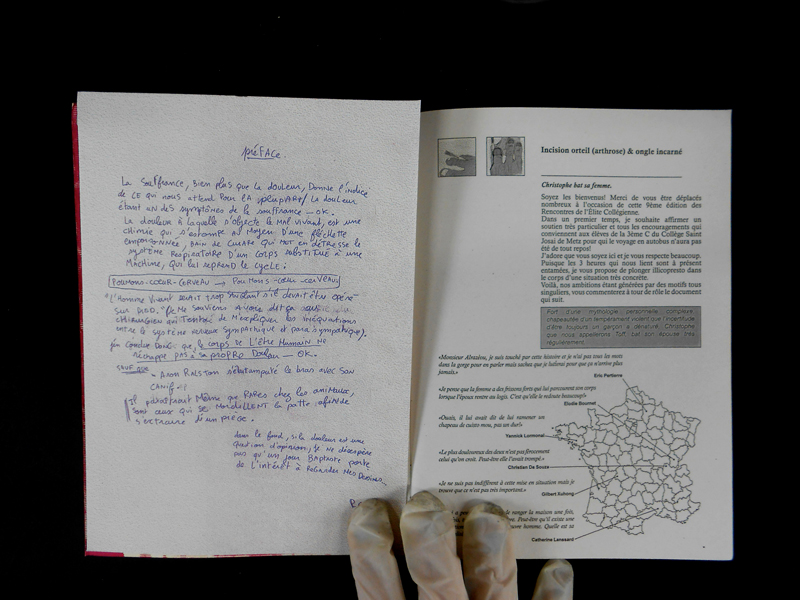 préface.
La souffrance, bien plus que la douleur, donne l'indice
de ce qui nous attend pour la plupart/ la douleur
étant un des symptômes de la souffrance — OK.
La douleur à laquelle s'objecte le mal vivant, est une
chimie qui s'estompe au moyen d'une fléchette
empoisonnée, bain de curare qui met en détresse le
système respiratoire d'un corps substitué à une
machine, qui lui reprend le cycle:
Poumons-coeur-cerveau → Poumons-coeur-cerveau
"L'Homme vivant serait trop s'il devait être opéré
sur
chirurgien qui m'expliquer les inéquations
entre le système nerveux sympathique et para sympathique).
que, le corps de l'être humain ne
réchappe pas à sa propre douleur — OK.
sauf que
Aron Ralston s'était amputé le bras avec son
canif
Il paraîtrait même que rares chez les animaux,
sont ceux qui se mordillent la patte, afin de
s'extraire d'un piège.
dans le fond, si la douleur est une
question d'opinion, je ne désespère
pas qu'un jour Baptiste porte
de l'intérêt à regarder mes dessins.
Incision orteil (arthrose) & ongle incarné
Christophe bat sa femme.
Soyez les bienvenus! Merci de vous être déplacés
nombreux à l'occasion de cette 9ème édition des
Rencontres de l'Elite Collégienne.
Dans un premier temps, je souhaite affirmer un
soutien très particulier et tous les encouragements qui
conviennent aux élèves de la 3ème C du Collège Saint
Josai de Metz pour qui le voyage en autobus n'aura pas
été de tout repos!
J'adore que vous soyez ici et je vous respecte beaucoup.
Puisque les 3 heures qui nous lient sont à présent
entamées, je vous propose de plonger illicopresto dans
le corps d'une situation très concrète.
Voilà, nos ambitions étant générées par des motifs tous
singuliers, vous commenterez à tour de rôle le document
qui suit.
Fort d'une mythologie personnelle complexe,
chapeautée d'un tempérament violent que l'incertitude
d'être toujours un garçon a dénaturé, Christophe
que nous appellerons Toff bat son épouse très
régulièrement.
«Monsieur Abraëva, je suis touché par cette histoire et je n'ai pas tous les mots
dans la gorge pour en parler mais sachez que je luttrais pour que ça n'arrive plus
jamais.»
Eric Partterve
«Je pense que la femme a des frissons forts qui lui parcourent son corps
lorsque l'époux rentre au logis. C'est qu'elle le redoute beaucoup!»
Elodie Bournet
«Ouais, il lui avait dit de lui ramener un
chapeau de cuistro mou, pas un dur!»
Yannick Lurmonal
«Le plus douloureux des deux n'est pas forcément
celui qu'on croit. Peut-être elle l'avait trompé.»
Christian De Souza
«Je ne suis pas indifférent à cette mise en situation mais je
trouve que ce n'est pas très important.»
Gilbert Xuhong
ranger la maison une fois,
Peut-être qu'il existe une
homme. Quelle est sa
Catherine Lanssard